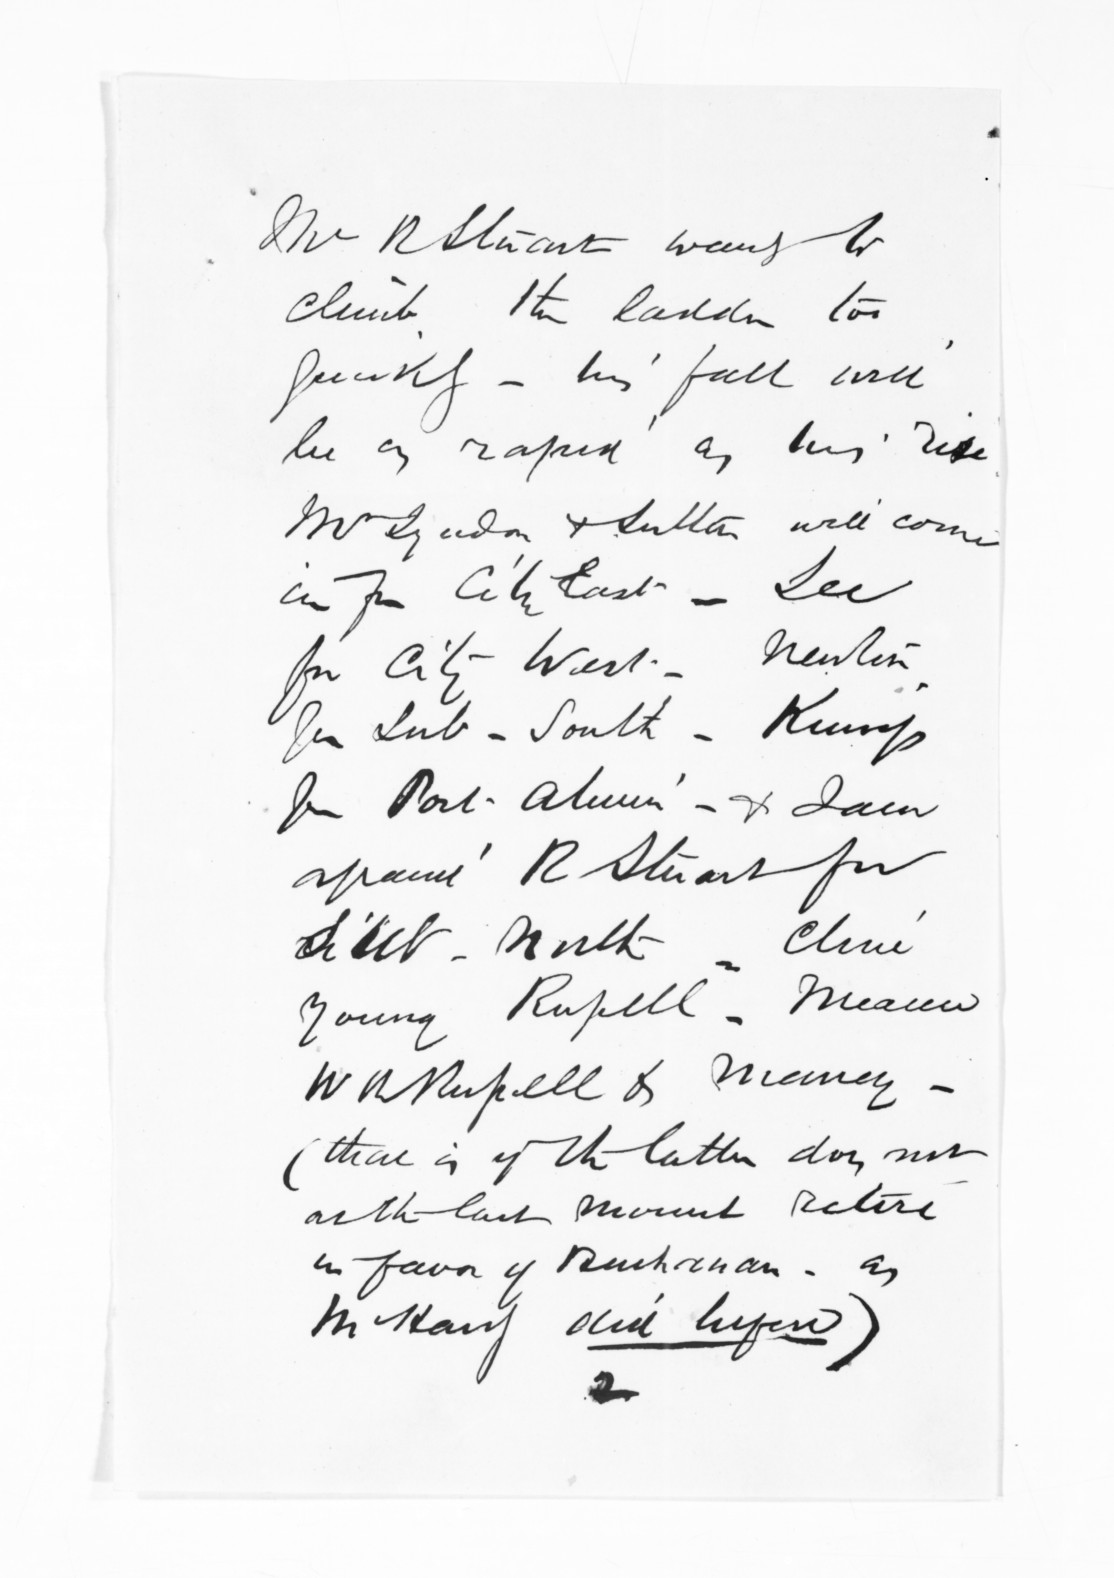 Mr R Stuart wants to
climb the ladder too
quickly - his fall will
be as rapid as his rise
Mr Lyndon & Sutton will come
in for City East - Lee
for City West - Newton
for Sub - South -
for Port Ahuriri - &
against R Stuart for
Sub - North - Clive
young Russell -
W R Russell &
(that is if the latter does not
at the last moment retire
in favor of Buchanan - as
did before)
2